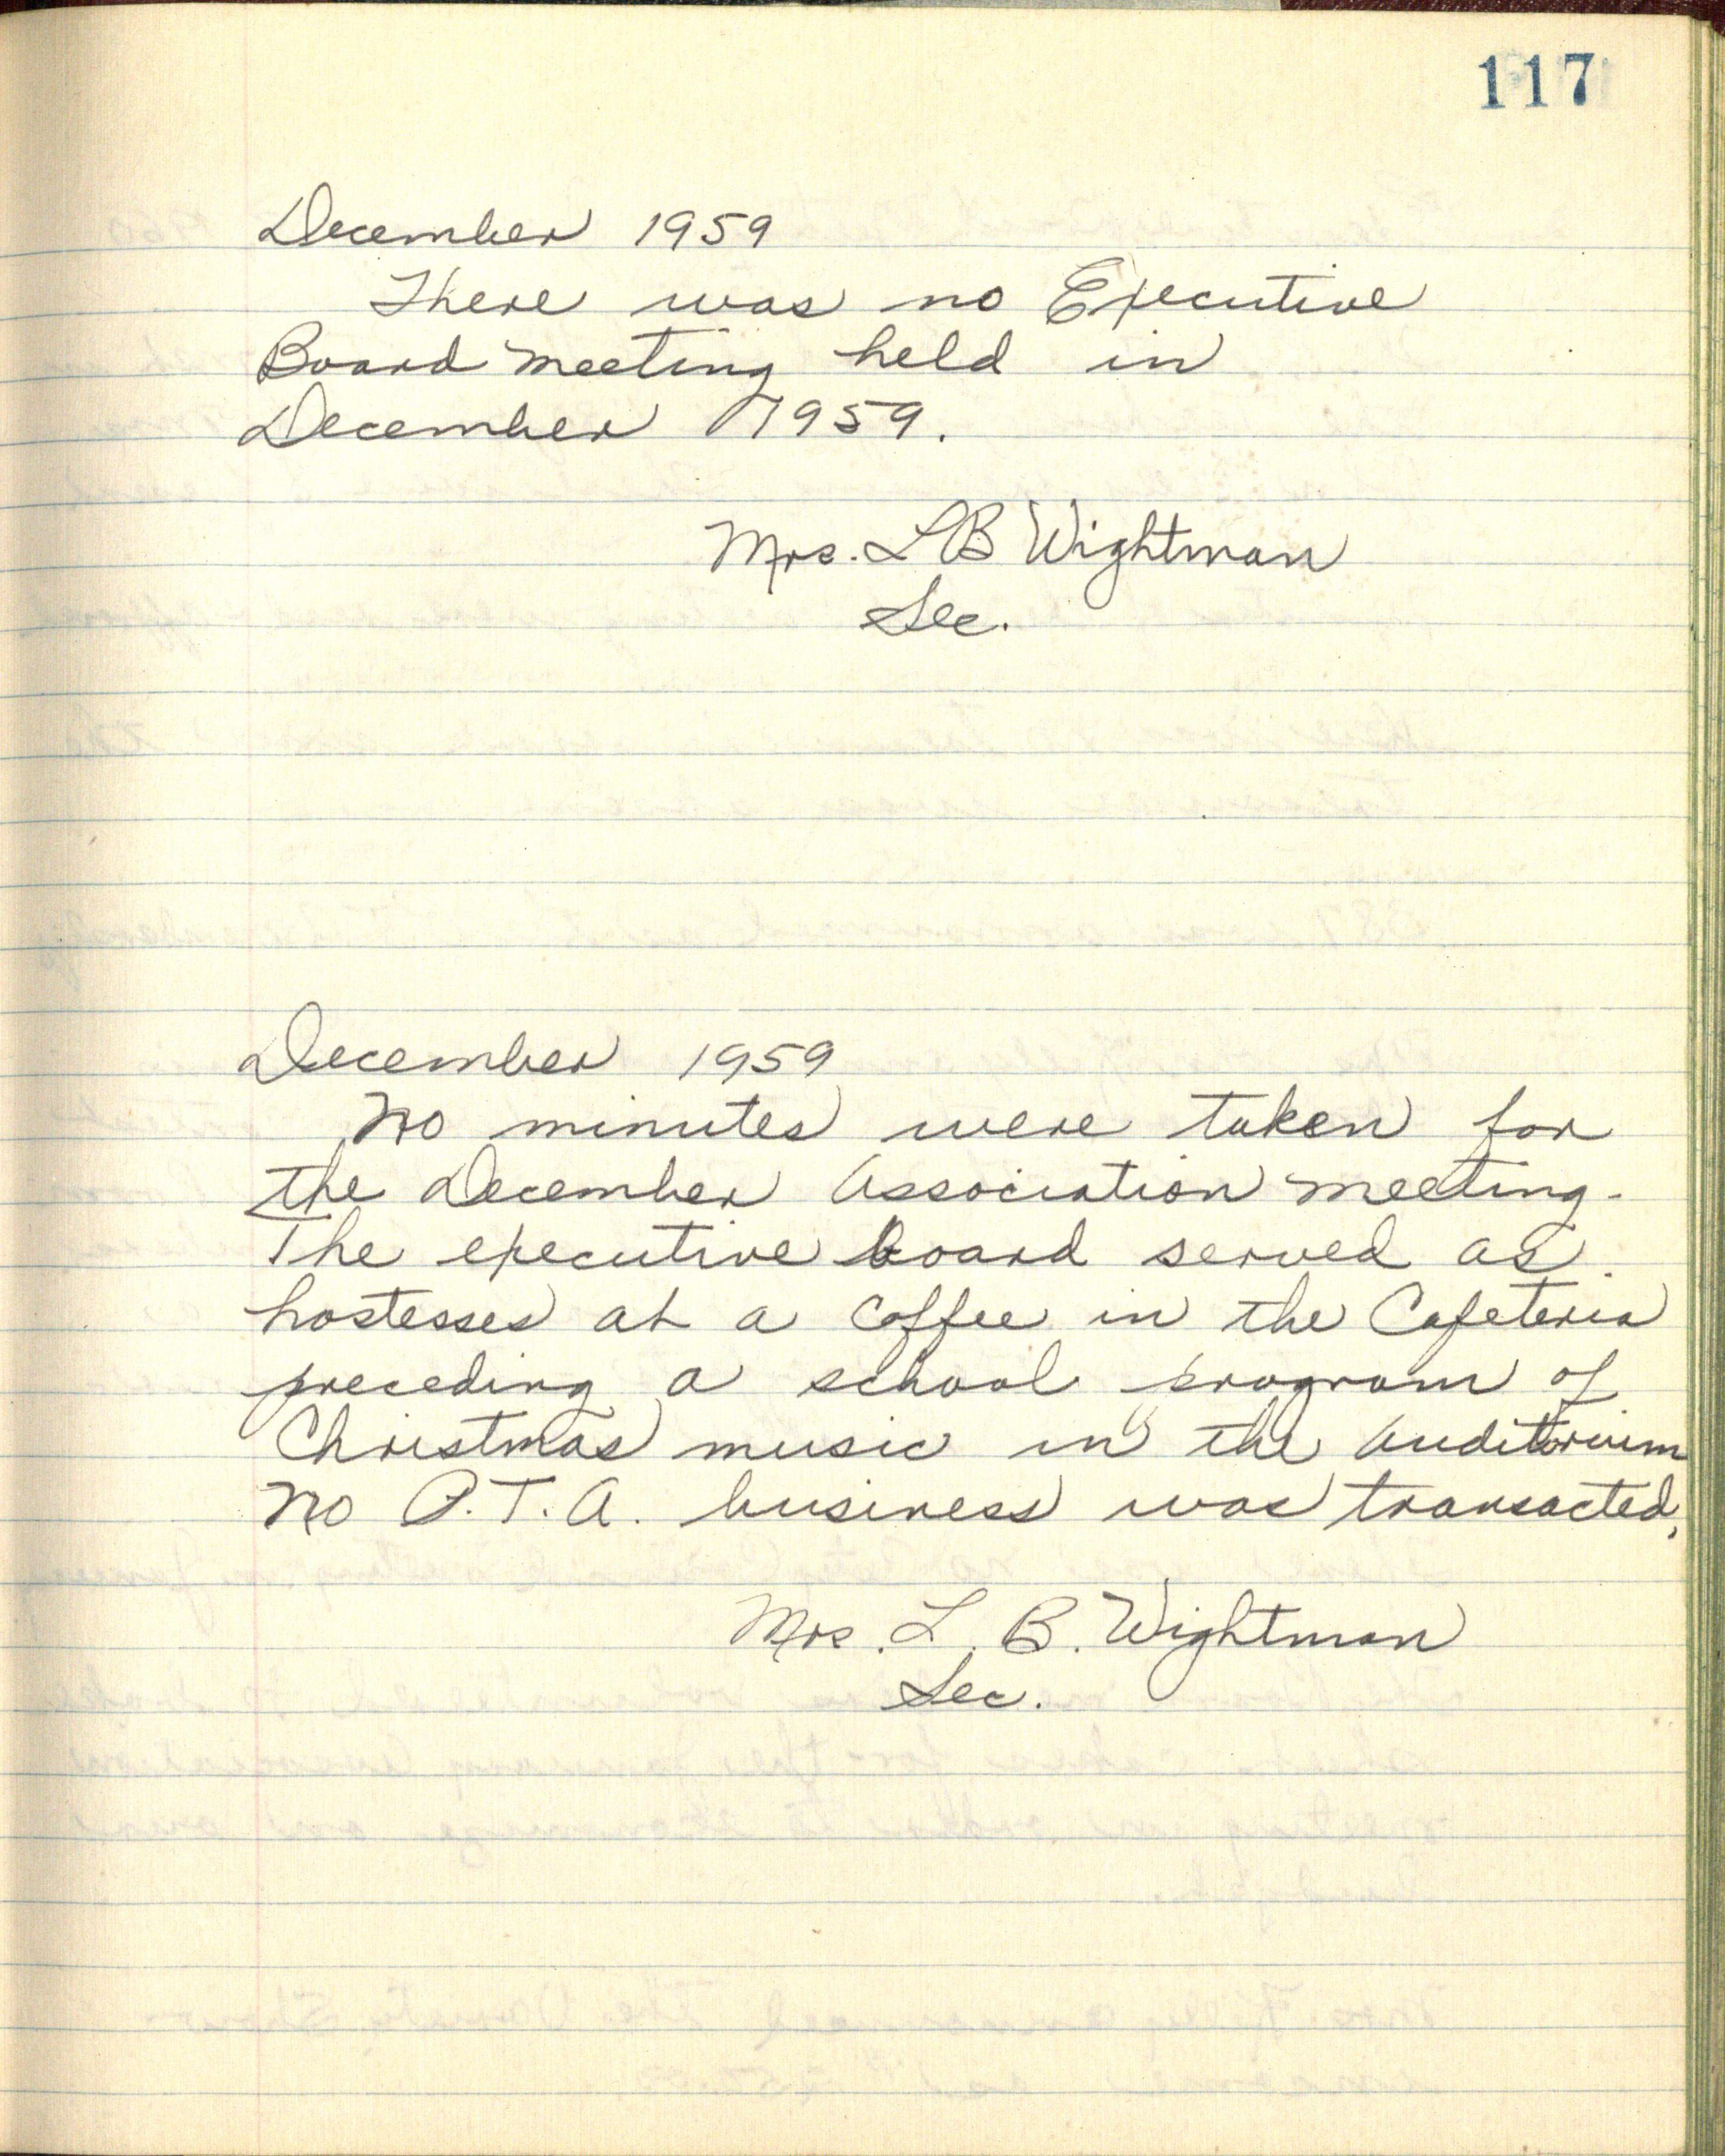 117
December 1959
There was no Executive
Board meeting held in
December 1959.
Mrs. L B Wightman
Sec.
December 1959
No minutes were taken for
the December Association meeting.
The executive board served as
hostesses at a coffee in the Cafeteria
preceding a school program of
Christmas music in the Auditorium
No P.T.A. business was transacted.
Mrs. L. B. Wightman
Sec.